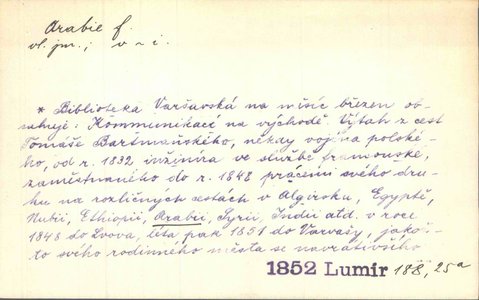 Arabie f.
vl. jm.; v ~ i.
* Biblioteka Varšavská na měsíc březen ob-
sahuje: Kommunikací na východě. Výtah z cest
Tomáše Bartmaňského, někdy vojína polské-
ho, od r. 1832 inžinira ve službě francouské,
zaměstnaného do r. 1848 pracemi svého dru-
hu na rozličných cestách v Algirsku, Egyptě,
Nubii, Ethiopii, Arabii, Syrii, Indii atd. v roce
1848 do Lvova, léta pak 1851 do Varšavy, jakož-
to svého rodinného města se navrátivšího
1852 Lumír 188, 25a